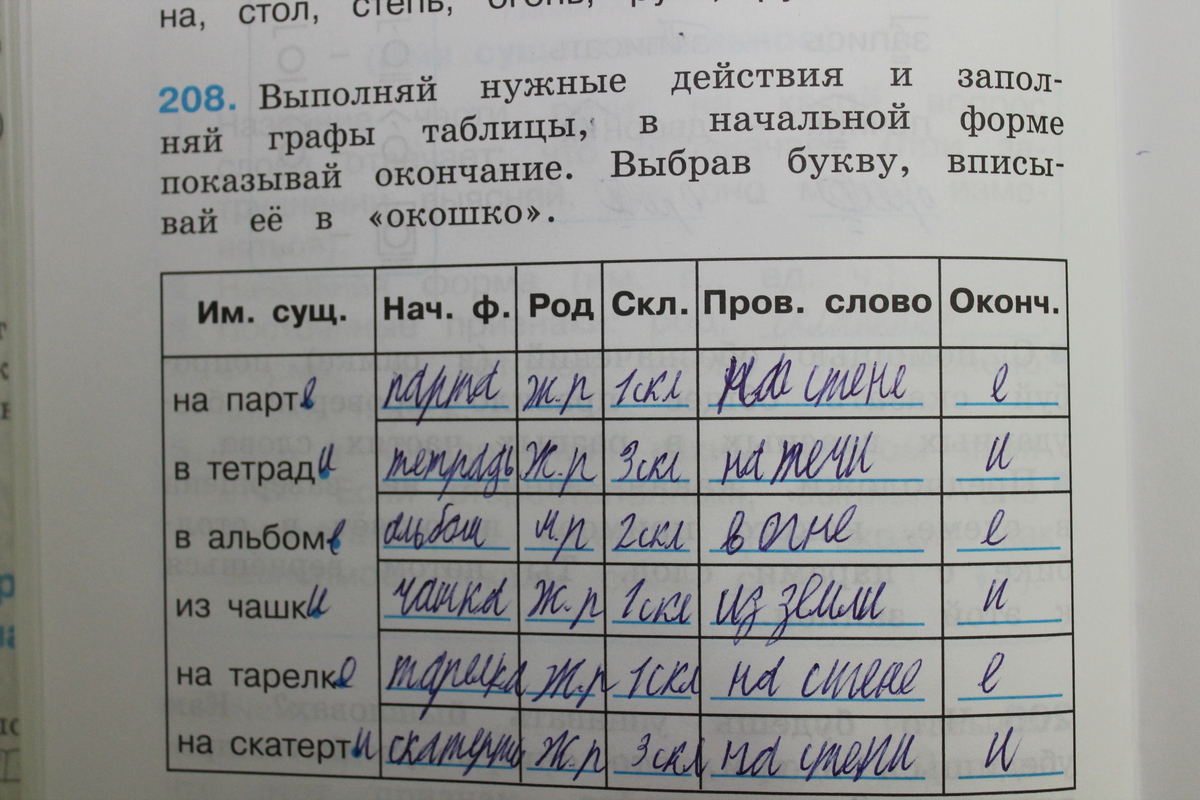 на, стол, степь, огонь,
208. Выполняй нужные действия и запол-
няй графы таблицы, в начальной форме
показывай окончание. Выбрав букву, вписы-
вай её в «окошко».
Им. сущ. Нач. ф. Род Скл. Пров. слово Оконч.
на парте парта ж.р 1скл на стене е
в тетради тетрадь ж.р 3скл на печи и
в альбоме альбом м.р 2скл в огне е
из чашки чашка ж.р 1скл из земли и
на тарелке тарелка ж.р 1скл на стене е
на скатерти скатерть ж.р 3скл на степи и